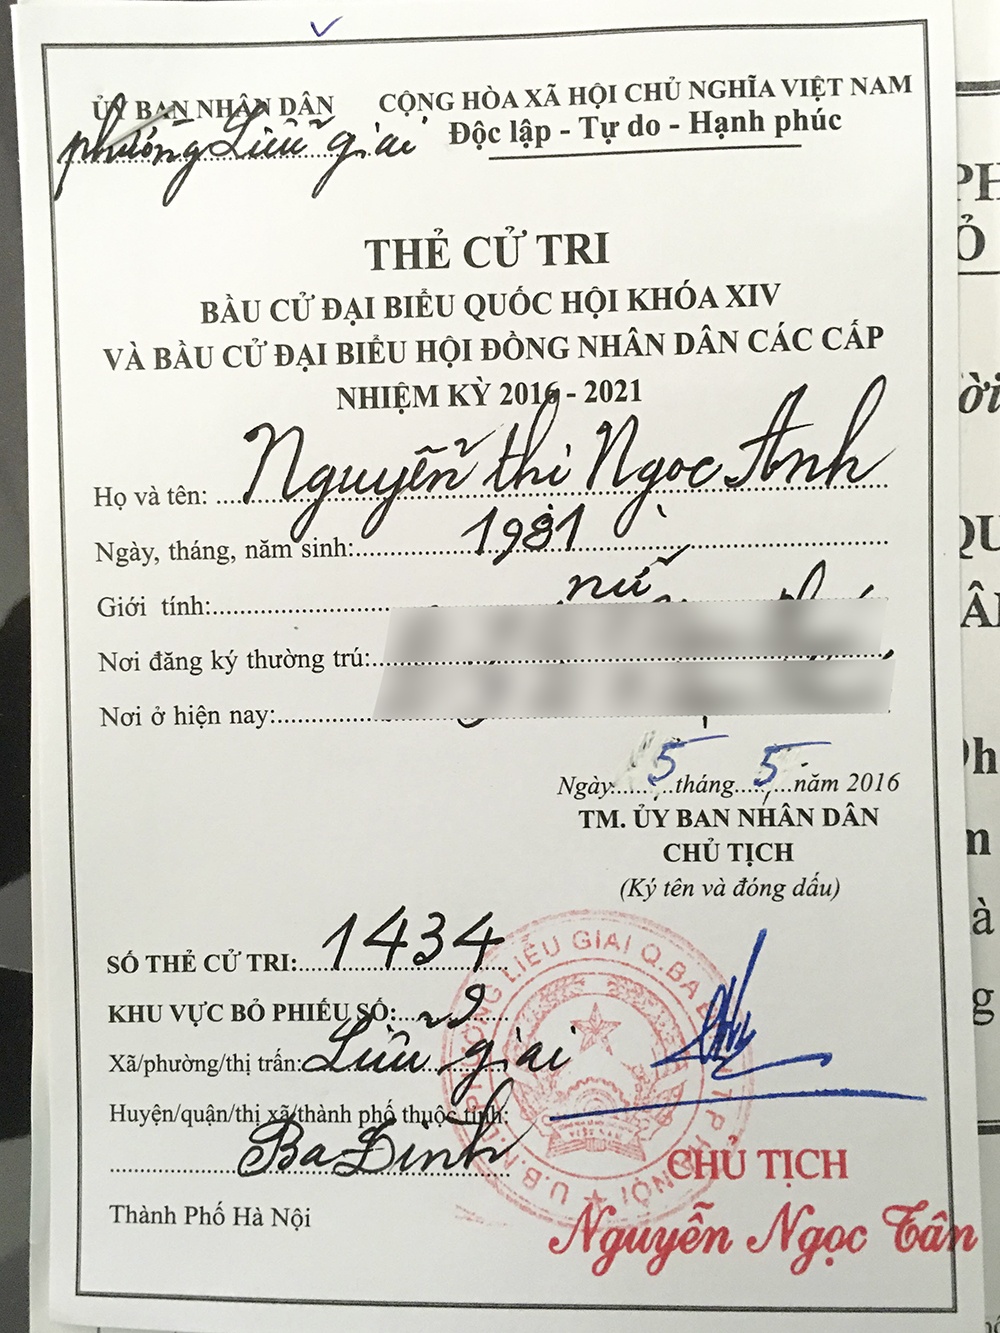 ỦY BAN NHÂN DÂN
phường Liễu giai
CỘNG HÒA XÃ HỘI CHỦ NGHĨA VIỆT NAM
Độc lập - Tự do - Hạnh phúc
THẺ CỬ TRI
BẦU CỬ ĐẠI BIỂU QUỐC HỘI KHÓA XIV
VÀ BẦU CỬ ĐẠI BIỂU HỘI ĐỒNG NHÂN DÂN CÁC CẤP
NHIỆM KỲ 2016 - 2021
Họ và tên: Nguyễn thị Ngọc Anh
Ngày, tháng, năm sinh: 1981
Giới tính: nữ
Nơi đăng ký thường trú:
Nơi ở hiện nay:
Ngày 5 tháng 5 năm 2016
TM. ỦY BAN NHÂN DÂN
CHỦ TỊCH
(Ký tên và đóng dấu)
SỐ THẺ CỬ TRI: 1434
KHU VỰC BỎ PHIẾU SỐ: 29
Xã/phường/thị trấn: Liễu giai
Huyện/quận/thị xã/thành phố thuộc tỉnh:
Ba Đình
Thành Phố Hà Nội
U.B.N.D PHƯỜNG LIỄU GIAI Q.BA ĐÌNH T.P HÀ NỘI
VIỆT NAM
CHỦ TỊCH
Nguyễn Ngọc Tân